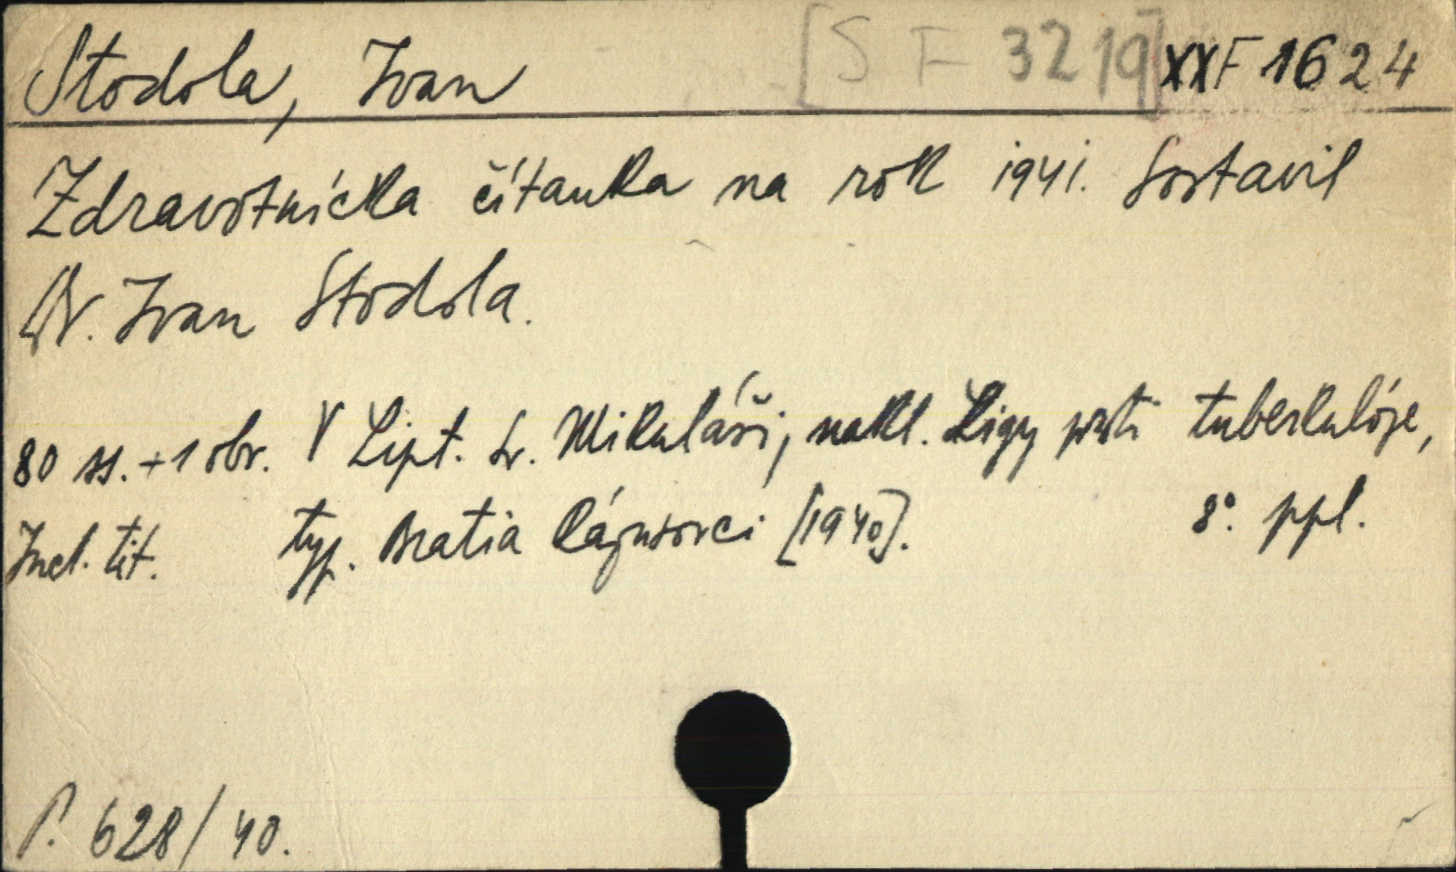 Stodola, Ivan [S F 3219] XXF 1624
Zdravotnícka čítanka na rok 1941. Sostavil
Dr. Ivan Stodola.
80 ss. + 1 obr. V Lipt. Sv. Mikuláši, nakl. Ligy proti tuberkulóze,
Incl. tit. typ. Bratia Rázusovci [1940]. 8°. ppl.
P. 628/40.